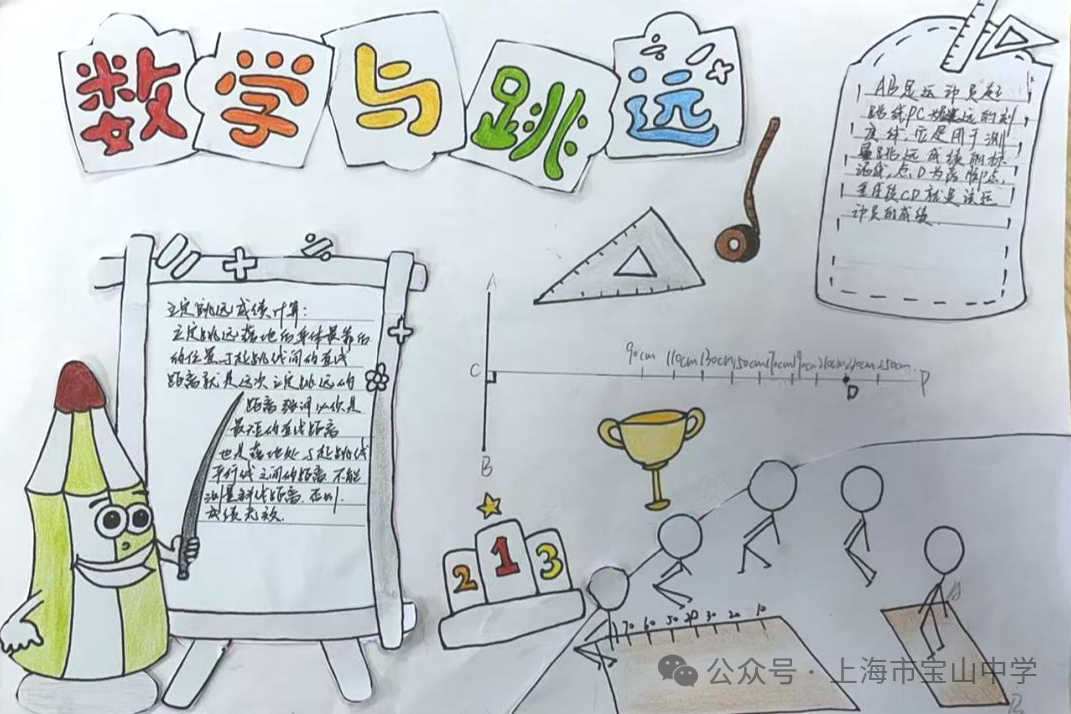 数学与跳远
AB是运动员起
跳线,PC为跳远的刻
度线,它是用于测
量跳远成绩的标
记线,点D为落脚点,
线段CD就是该运
动员的成绩
立定跳远成绩计算:
立定跳远落地后身体最靠后
的位置与起跳线间的直线
距离就是这次立定跳远的
距离 强调以你是
最短的直线距离
也是落地处与起跳线
平行线之间的距离 不能
测量斜线距离,否则,
成绩无效.
A
90cm 110cm 130cm 150cm
C
P
D
B
2 1 3
70 60 50 40 30 20 10
公众号·上海市宝山中学